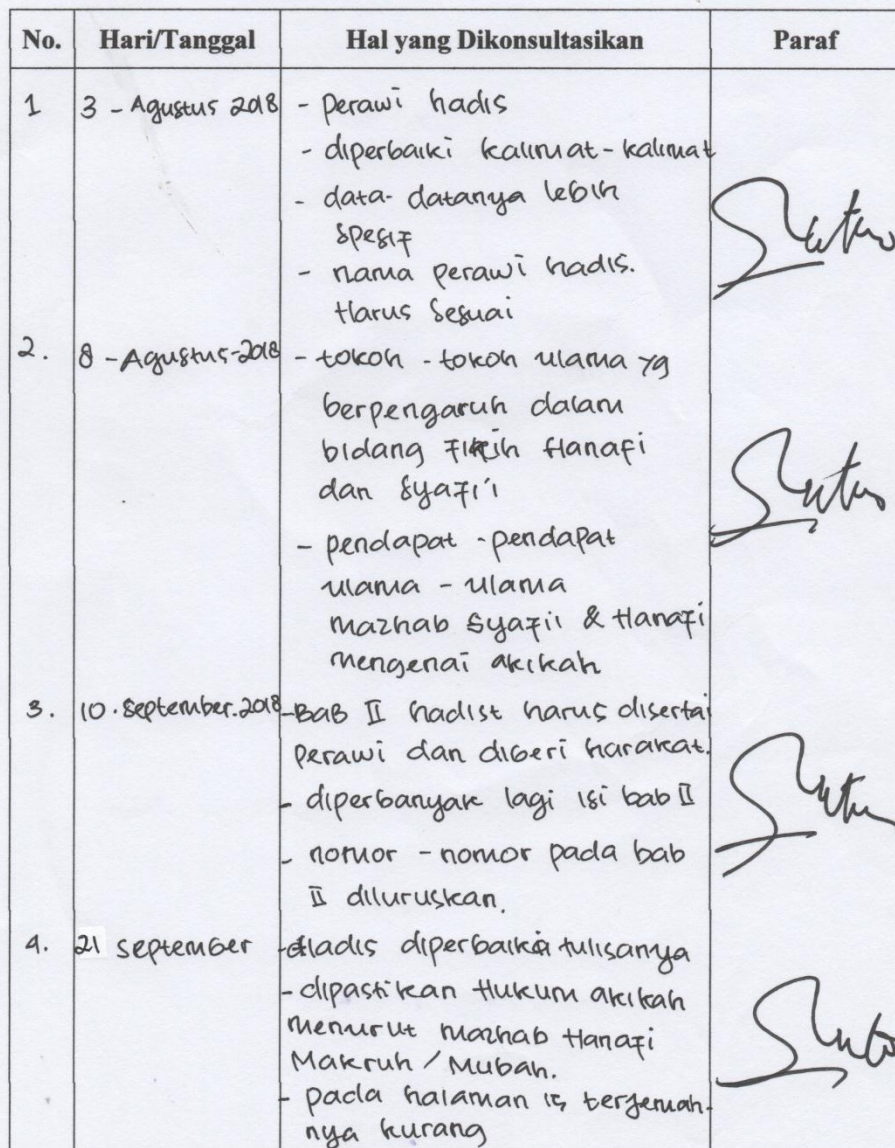 No. Hari/Tanggal Hal yang Dikonsultasikan Paraf
1 3 - Agustus 2018 - perawi hadis
- diperbaiki kalimat - kalimat
- data - datanya lebih
spesif
- nama perawi hadis.
Harus sesuai
2. 8 - Agustus - 2018 - tokoh - tokoh ulama yg
berpengaruh dalam
bidang Fikih Hanafi
dan Syafi'i
- pendapat - pendapat
ulama - ulama
mazhab Syafii & Hanafi
mengenai akikah
3. 10. September. 2018 - BAB II hadist harus disertai
perawi dan diberi harakat.
- diperbanyak lagi isi bab II
- nomor - nomor pada bab
II diluruskan.
4. 21 September - Hadis diperbaiki tulisanya
- dipastikan Hukum akikah
menurut mazhab Hanafi
Makruh / Mubah.
- pada halaman 15 terjemah-
nya kurang